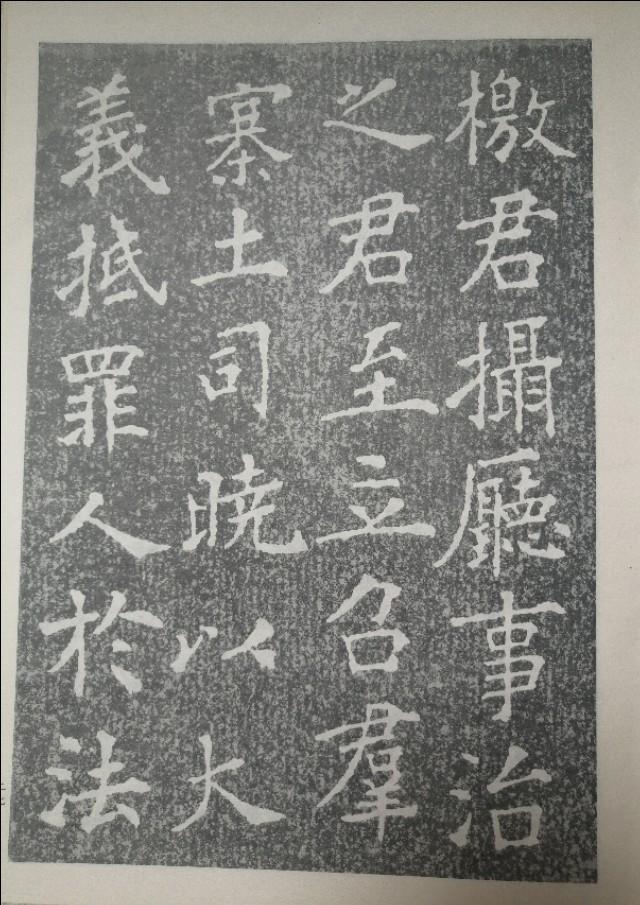 檄君攝廳事治
之君至立召羣
寨土司曉以大
義抵罪人於法